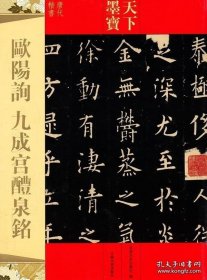 天下
墨寶
唐代
楷書
歐陽詢 九成宮醴泉銘
深尤至於炎
金無鬱蒸之氣
徐動有淒清之
四方逮乎立